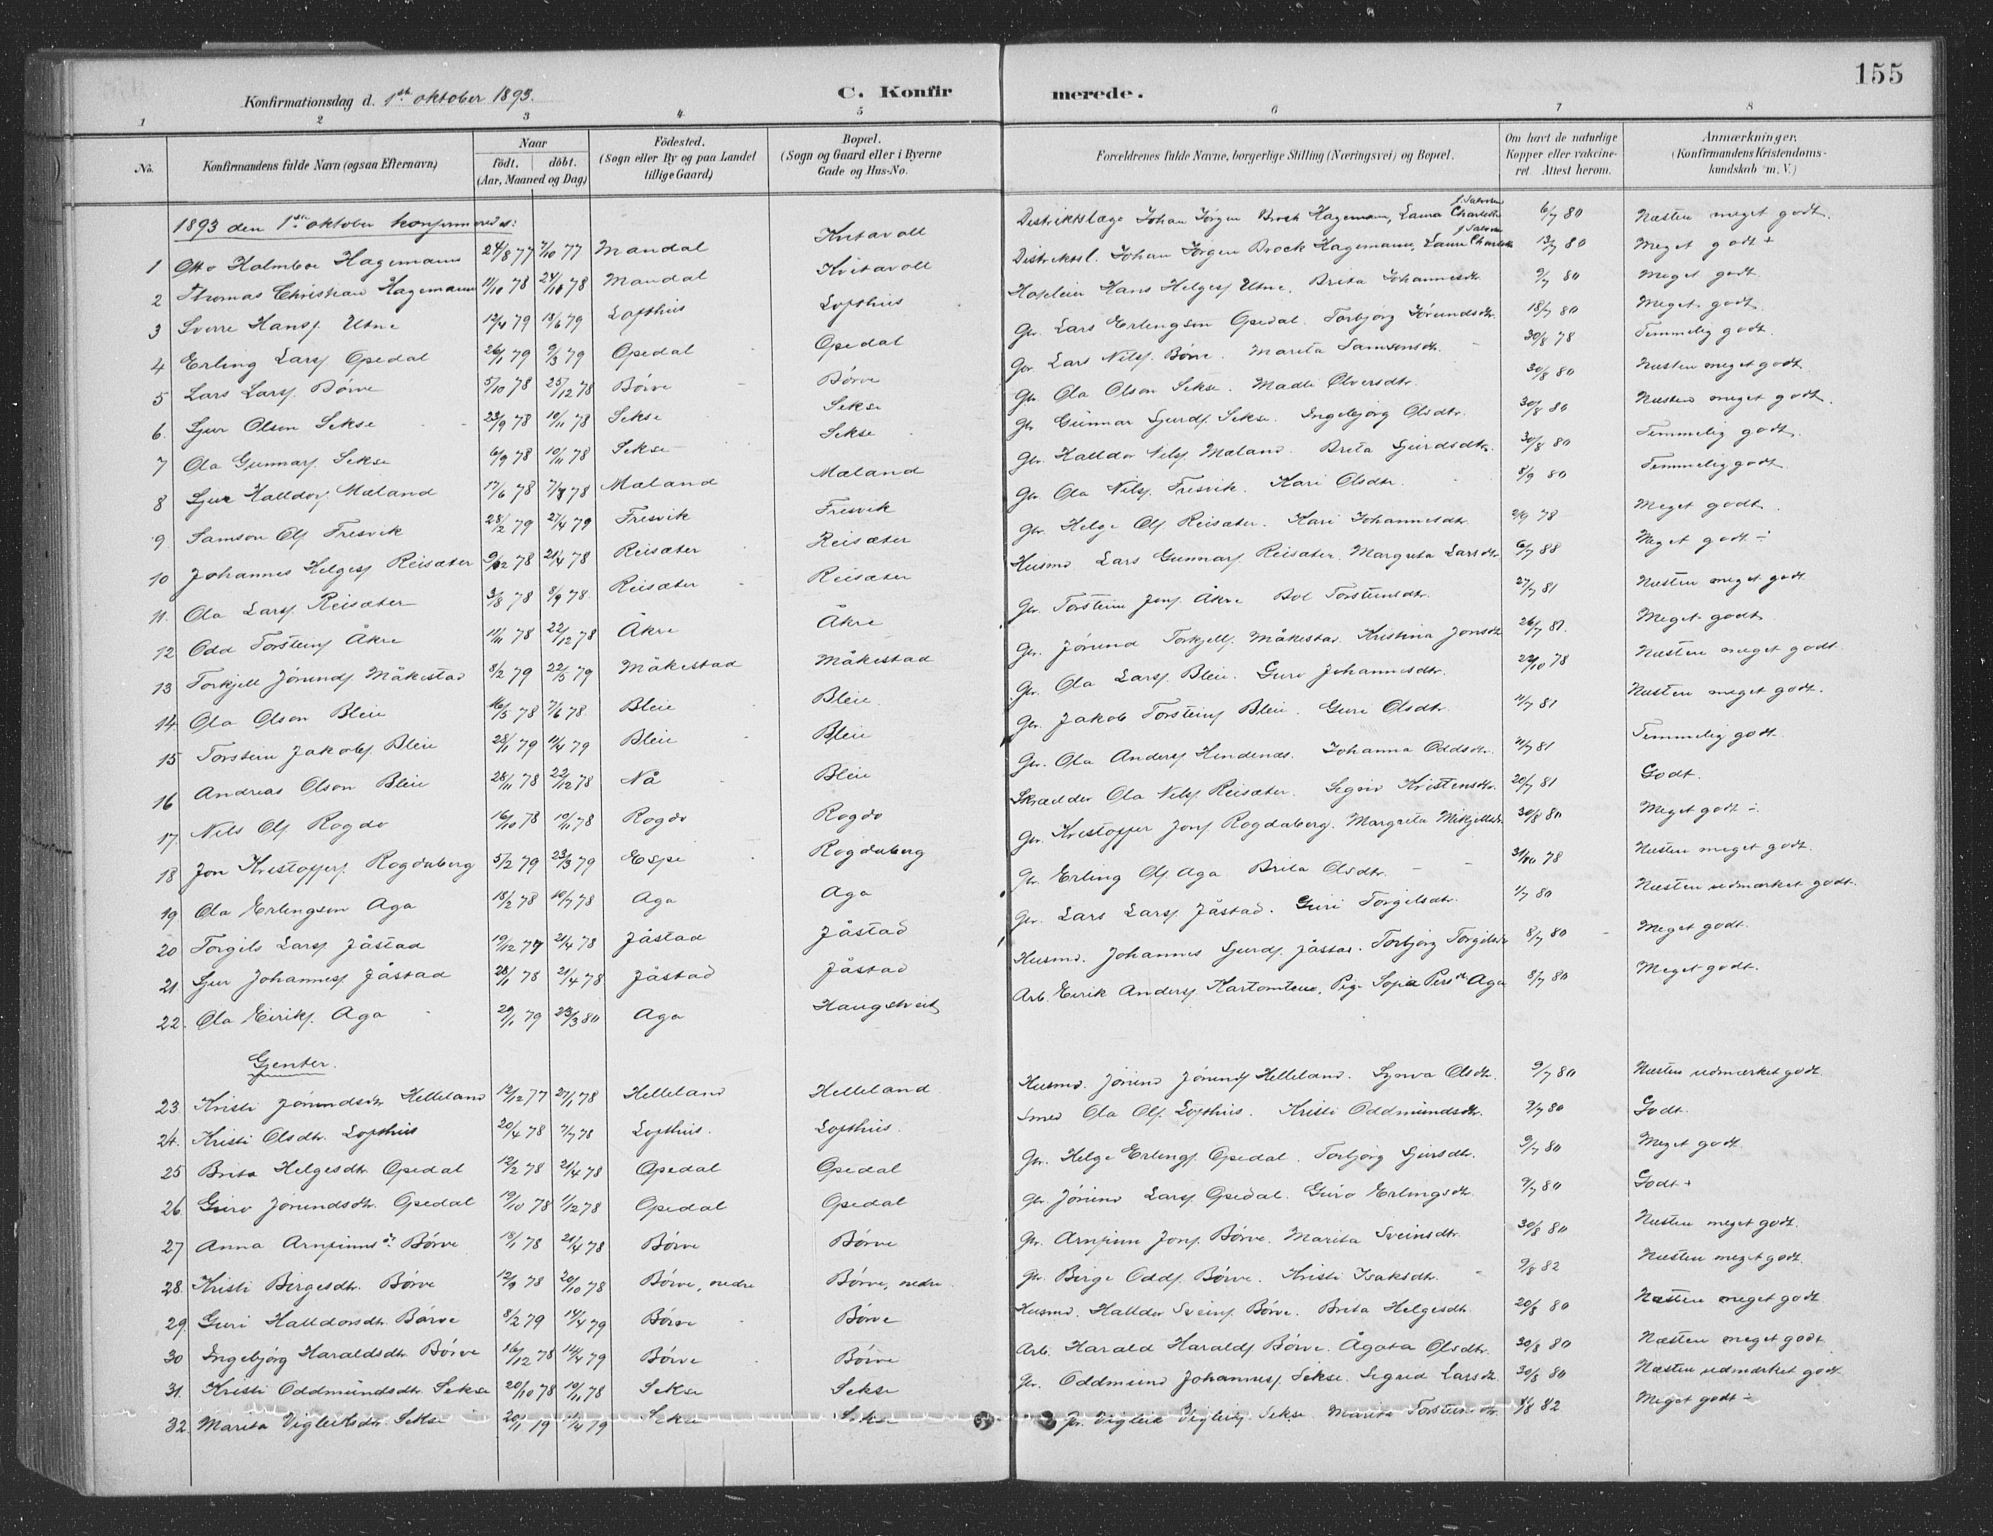 155
Konfirmationsdag d. 1ste oktober 1893. C. Konfirmerede.
1 2 3 4 5 6 7 8
No. Konfirmandens fulde Navn (ogsaa Efternavn) Naar födt. döbt. (Aar, Maaned og Dag) Födested. (Sogn eller By og paa Landet tillige Gaard) Bopæl. (Sogn og Gaard eller i Byerne Gade og Hus-No. Forældrenes fulde Navne, borgerlige Stilling (Næringsvei) og Bopæl. Om havt de naturlige Kopper eller vakcineret Attest herom. Anmærkninger. (Konfirmandens Kristendomskundskab m. V.)
1893 den 1ste oktober konfirmeredes:
1 Otto Holmboe Hagemann 24/8 77 7/10 77 Mandal Kvitavoll Distriktslæge Johan Jörgen Brock Hagemann, Laura Charlotte 6/7 80 Næsten meget godt.
2 Thomas Christian Hagemann 11/10 78 24/11 78 Mandal Kvitavoll Distriktsl. Johan Jörgen Brock Hagemann, Laura Charlotte 13/7 80 Meget godt +
3 Sverre Hansf. Utne 12/4 79 13/6 79 Lofthus Lofthus Hoteleier Hans Helgesf. Utne, Brita Johannesdtr. 9/7 80 Meget godt.
4 Erling Larsf. Opedal 26/1 79 9/3 79 Opedal Opedal Gbr. Lars Erlingson Opedal. Torbjörg Jörundsdtr. 18/7 80 Meget godt.
5 Lars Larsf. Börve 5/10 78 25/12 78 Börve Börve Gbr. Lars Nilsf. Börve. Marita Samsonsdtr. 30/8 78 Temmelig godt.
6. Sjur Olson Sekse 23/9 78 10/11 78 Sekse Sekse Gbr. Ola Olson Sekse. Madli Olversdtr. 30/8 80 Næsten meget godt.
7 Ola Gunnarf. Sekse 6/9 78 10/11 78 Sekse Sekse Gbr. Gunnar Sjurdf. Sekse. Ingebjörg Olsdtr. 30/8 80 Næsten meget godt.
8 Sjur Halldorf. Mæland 17/6 78 7/8 78 Mæland Mæland Gbr. Halldor Nilsf. Mæland. Brita Sjurdsdtr. 30/8 80 Temmelig godt.
9. Samson Olf. Fresvik 28/2 79 27/4 79 Fresvik Fresvik Gbr. Ola Nilsf. Fresvik. Kari Olsdtr. 8/9 80 Temmelig godt.
10 Johannes Helgesf. Reisæter 78 21/4 78 Reisæter Reisæter Gbr. Helge Olf. Reisæter. Kari Johannesdtr. 78 Meget godt.
11. Ola Larsf. Reisæter 3/8 78 8/9 78. Reisæter Reisæter Husmd. Lars Gunnarf. Reisæter. Margreta Larsdtr. 6/7 88 Meget godt ÷
12 Odd Torsteinf. Åkre 11/11 78 22/12 78 Åkre Åkre Gbr. Torstein Jonf. Åkre Bol Torsteinsdtr. 27/7 81 Næsten meget godt
13 Torkjell Jörundf. Måkestad 8/2 79 22/5 79 Måkestad Måkestad Gbr. Jörund Torkjellf. Måkestad. Kristina Jonsdtr. 26/7 81. Meget godt
14. Ola Olson Bleie 16/5 78 7/6 78. Bleie Bleie. Gbr. Ola Larsf. Bleie. Guro Johannesdtr. 22/10 78 Næsten meget godt.
15 Torstein Jakobf. Bleie 28/1 79 11/4 79 Bleie Bleie Gbr. Jakob Torsteinf. Bleie. Guri Olsdtr. 11/7 81 Næsten meget godt.
16 Andreas Olson Bleie 28/11 78 22/12 78 Nå Bleie Gbr. Ola Andersf. Hendenes. Johanna Oddsdtr. 11/7 81 Temmelig godt.
17. Nils Olf. Rogdo 16/10 78 10/11 78 Rogdo Rogdo Skrædder Ola Nilsf. Reisæter. Sigrid Kristensdtr. 20/7 81 Godt.
18 Jon Kristofferf. Rogdaberg 5/2 79 23/3 79 Espe Rogdaberg Gbr. Kristoffer Jonf. Rogdaberg. Margreta Mikjelsdtr. 30/8 80 Meget godt ÷
19 Ola Erlingson Aga 18/2 78 10/7 78 Aga Aga Gbr. Erling Olf. Aga Brita Olsdtr. 31/10 78 Næsten meget godt.
20 Torgils Larsf. Jåstad 19/12 77 21/4 78 Jåstad Jåstad Gbr. Lars Larsf. Jåstad. Guri Torgilsdtr. 1/7 80 Næsten udmærket godt.
21. Sjur Johannesf. Jåstad 28/1 78 21/4 78 Jåstad Jåstad Husmd. Johannes Sjurdf. Jåstad. Torbjörg Torgilsdtr. 8/7 80 Meget godt.
22. Ola Eirikf. Aga 29/1 79 23/3 80 Aga Haugstveit Arb. Eirik Andersf. Kartomtene, Pig. Sofia Persdtr. Aga 8/7 80 Meget godt.
Gjenter.
23. Kristi Jörundsdtr. Helleland 12/12 77 27/1 78 Helleland Helleland Husmd. Jörund Jörundf. Helleland. Synva Olsdtr. 9/7 80 Næsten udmærket godt.
24. Kristi Olsdtr. Lofthus 20/4 78 7/7 78 Lofthus. Lofthus. Smed Ola Olf. Lofthus. Kristi Oddmundsdtr. 9/7 80 Godt.
25 Brita Helgesdtr. Opedal 12/2 78 21/4 78 Opedal Opedal Gbr. Helge Erlingf. Opedal. Torbjörg Sjursdtr. 9/7 80 Meget godt.
26 Guro Jörundsdtr. Opedal 19/10 78 1/12 78 Opedal Opedal Gbr. Jörund Larsf. Opedal. Guro Erlingsdtr. 9/7 80 Godt +
27 Anna Arnfinnsdtr. Börve 18/1 78 21/4 78 Börve Börve Gbr. Arnfinn Jonf. Börve. Marita Sveinsdtr. 30/8 80 Næsten meget godt.
28. Kristi Birgesdtr. Börve 12/9 78 20/10 78 Börve, nedre Börve, nedre. Gbr. Birge Oddf. Börve. Kristi Isaksdtr. 9/8 82 Næsten meget godt.
29. Guri Halldorsdtr. Börve 8/2 79 14/4 79 Börve Börve Husmd. Halldor Sveinf. Börve. Brita Helgesdtr. 20/8 80 Næsten meget godt
30 Ingebjörg Haraldsdtr. Börve 16/12 78 14/4 79 Börve Börve Arb. Harald Haraldf. Börve. Ågata Olsdtr. 30/8 80 Næsten meget godt
31. Kristi Oddmundsdtr. Sekse 20/10 78 10/11 78 Sekse Sekse Gbr. Oddmund Johannesf. Sekse. Sigrid Larsdtr. 30/8 80 Næsten udmærket godt.
32. Marita Vigleiksdtr. Sekse 20/1 79 1/4 79 Sekse Sekse Gbr. Vigleik Vigleikf. Sekse Marita Torsteinsdtr. 82 Meget godt ÷